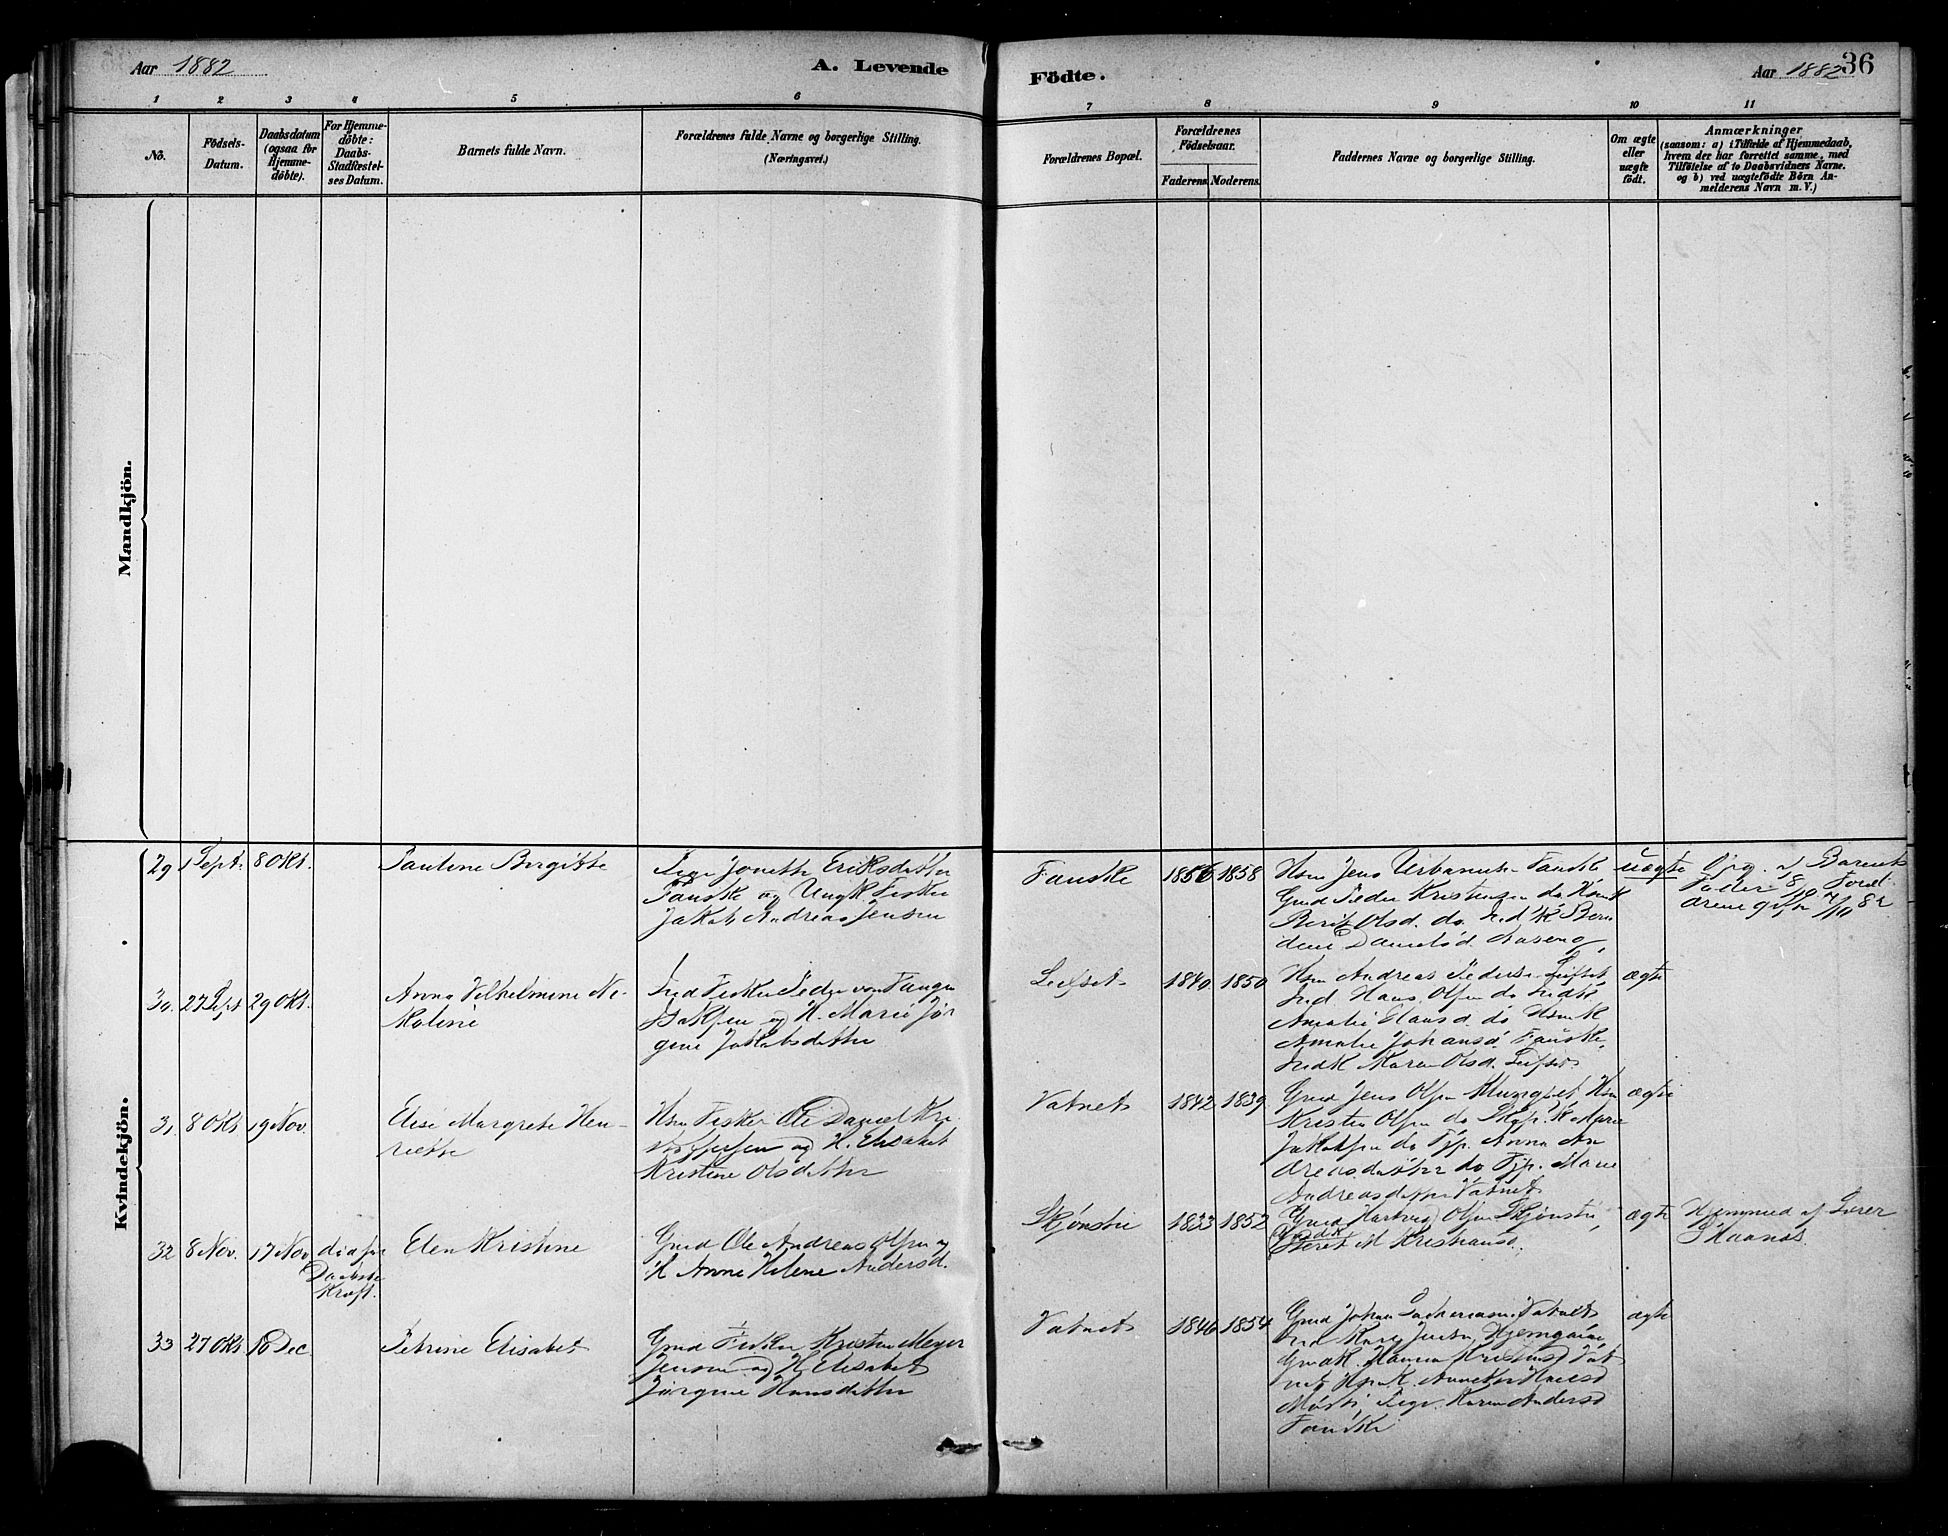 Aar 1882
A. Levende
Födte.
Aar 1882
36
1 2 3 4 5 6 7 8 9 10 11
No.
Födsels-
Datum.
Daabsdatum
(ogsaa for
Hjemme-
döbte).
For Hjemme-
döbte:
Daabs-
Stadfæstel-
ses Datum.
Barnets fulde Navn.
Forældrenes fulde Navne og borgerlige Stilling.
(Næringsvei.)
Forældrenes Bopæl.
Forældrenes
Födselsaar.
Faderens. Moderens.
Faddernes Navne og borgerlige Stilling.
Om ægte
eller
uægte
födt.
Anmærkninger
(saasom: a) i Tilfælde af Hjemmedaab,
hvem der har forrettet samme, med
Tilföielse af to Daabsvidners Navne.
og b) ved uægtefödte Börn An-
melderens Navn m. V.)
Mandkjön.
Kvindekjön.
29 1 Sept. 8 Okt.
Pauline Birgitte
Pige Joneth Eriksdatter
Fauske og Ungk Fisker
Jakob Andreas Jensen
Fauske
1856 1858
Hsm Jens Urbanus Fauske
Gmd Peder Kristensen do
Berit Olsd. do
uægte
30. 27 Sept 29 Okt.
Anna Vilhelmine Ni-
koline
Ind Fisker Peder von Tangen
Isaksen og H. Marie Jør
gine Jakobsdatter
Leifset
1840 1850
Hsm Andreas Peders. Leifset
Ind. Hans Olsen do Indk
Amalie Hansd. do Hsmk
Amalie Johansd Fauske,
Indk Maren Olsd. Leifset
ægte
31 8 Okt 19 Nov.
Elise Margrete Hen-
riette
Hsm Fisker Ole Daniel Kri
stoffersen og H. Elisabet
Kristine Olsdatter
Vatnet
1842 1839
Gmd Jens Olsen Hsm
Kristen Olsen do
Jakobsen do Anna An
dreasdatter do Marie
Andreasdatter Vatnet
ægte
32 8 Nov. 17 Nov
Daabs
Kraft.
Elen Kristine
Gmd Ole Andreas Olsen og
H Anne Helene Andersd.
Skjønstu
1833 1852
Gmd Hartvig Olsen Skjønstu,
Gmdk
Beret M Kristiansd.
ægte
Hjemmed af Lærer
Skaanes
33 27 Okt. 16 Dec
Petrine Elisabet
Gmd Fisker Kristen Meyer
Jensen og H. Elisabet
Jørgine Hansdatter
Vatnet
1846 1854
Gmd Johan Zachariasen Vatnet
Gmdk. Hanna Kristensd Vat
net
Karen Andersd
Fauske
ægte